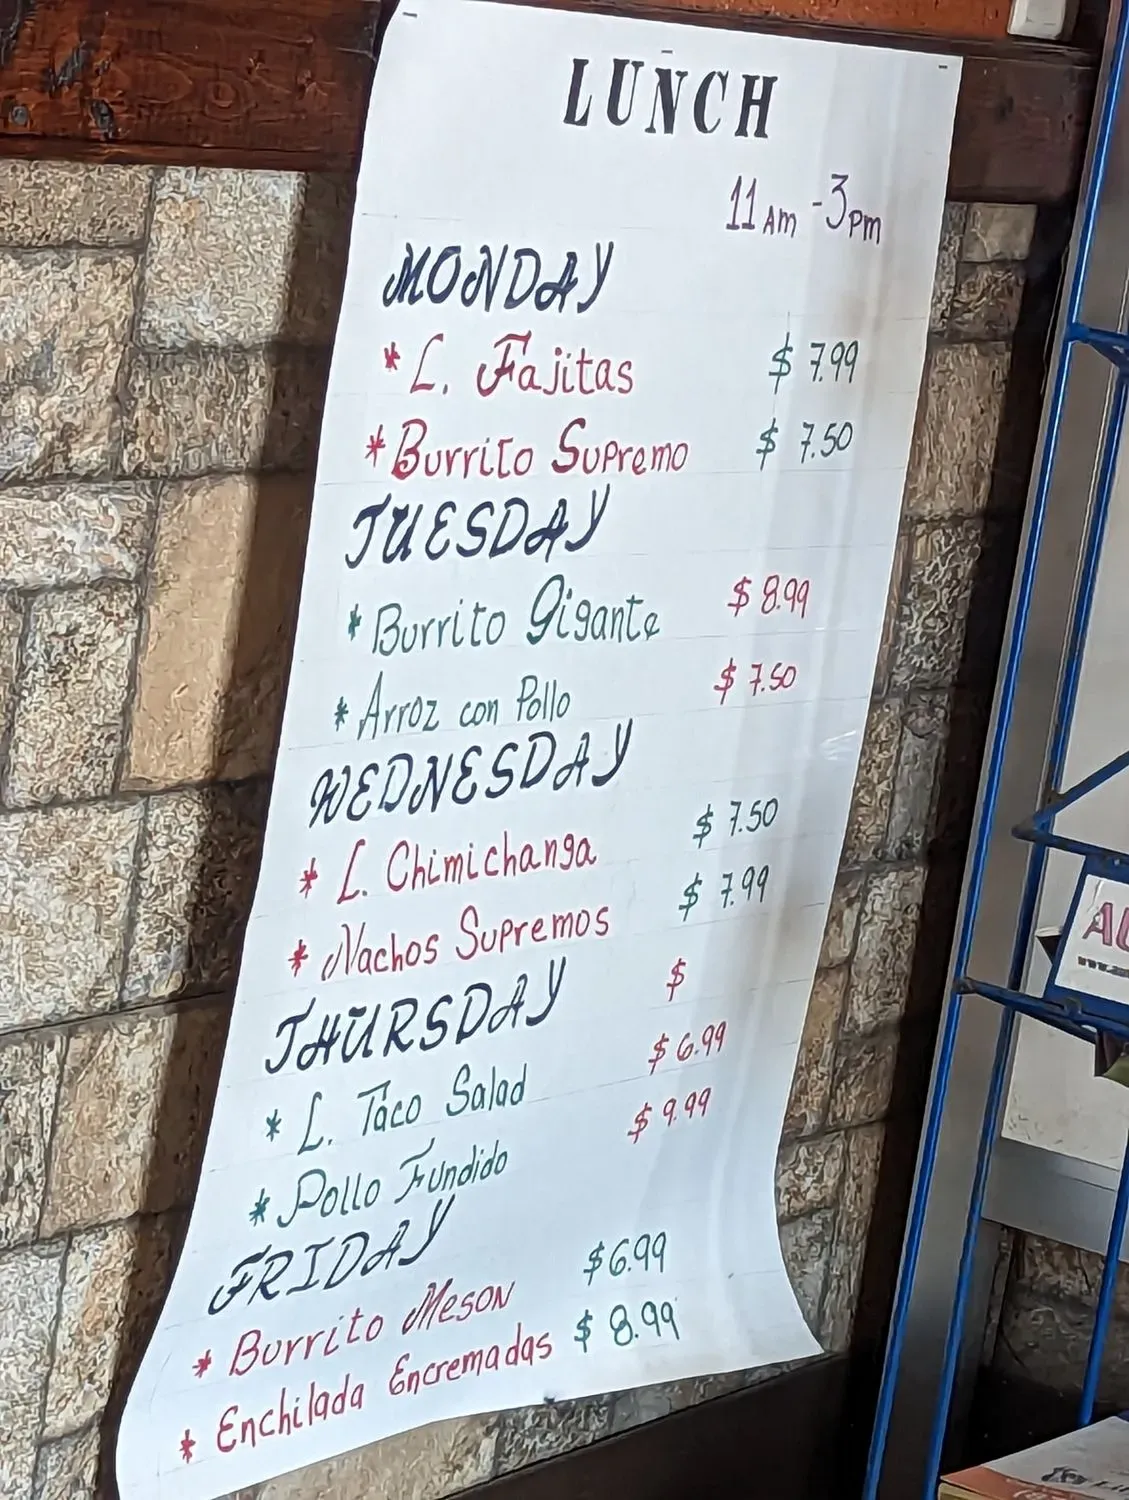 LUNCH
11Am -3pm
MONDAY
* L. Fajitas $ 7.99
* Burrito Supremo $ 7.50
TUESDAY
* Burrito Gigante $ 8.99
* Arroz con Pollo $ 7.50
WEDNESDAY
* L. Chimichanga $ 7.50
* Nachos Supremos $ 7.99
THURSDAY $
* L. Taco Salad $ 6.99
* Pollo Fundido $ 9.99
FRIDAY
* Burrito Meson $6.99
* Enchilada Encremadas $ 8.99